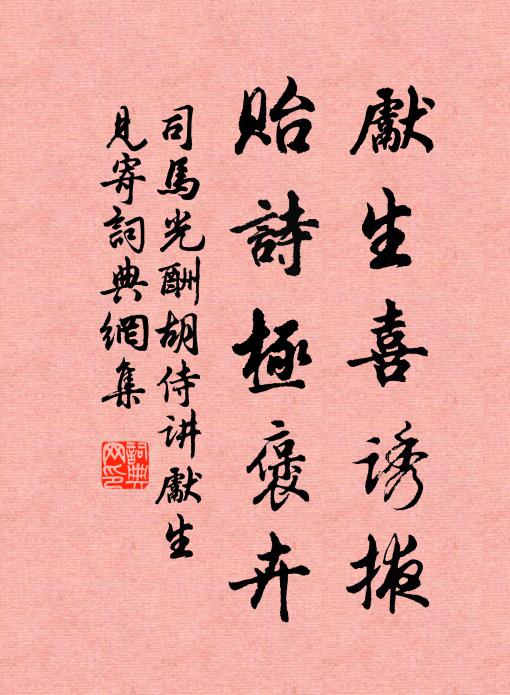 獻生喜诱掖
貽詩極褒卉
司馬光酬胡侍讲獻生
見寄詞典網集
詞典網印